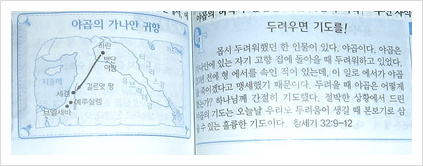 야곱의 가나안 귀향
하란
밧단
아람
길르앗 땅
세겜
예루살렘
브엘세바
두려우면 기도를!
몹시 두려워했던 한 인물이 있다. 야곱이다. 야곱은
가나안에 있는 자기 고향 집에 돌아올 때 두려워하고 있었다.
전에 형 에서를 속인 적이 있는데, 이 일로 에서가 야곱
죽이겠다고 맹세했기 때문이다. 두려울 때 야곱은 어떻게
하나님께 간절히 기도했다. 절박한 상황에서 드린
기도는 오늘날 우리도 두려움이 생길 때 본보기로 삼
수 있는 훌륭한 기도이다. 창세기 32:9-12